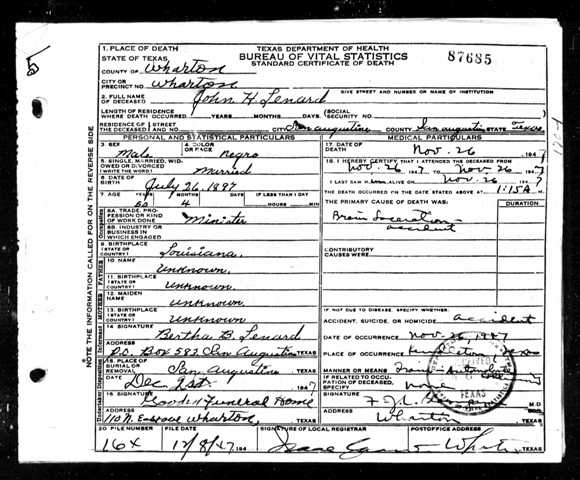 5
1. PLACE OF DEATH
STATE OF TEXAS
COUNTY OF Wharton
CITY OR PRECINCT NO. Wharton
TEXAS DEPARTMENT OF HEALTH
BUREAU OF VITAL STATISTICS
STANDARD CERTIFICATE OF DEATH
87685
GIVE STREET AND NUMBER OR NAME OF INSTITUTION
2. FULL NAME OF DECEASED John H. Lenard
LENGTH OF RESIDENCE WHERE DEATH OCCURRED YEARS MONTHS DAYS
SOCIAL SECURITY NO.
RESIDENCE OF THE DECEASED STREET AND NO. CITY San Augustine COUNTY San Augustine STATE Texas
PERSONAL AND STATISTICAL PARTICULARS
3. SEX Male
4. COLOR OR RACE Negro
5. SINGLE, MARRIED, WIDOWED OR DIVORCED (WRITE THE WORD) Married
6. DATE OF BIRTH July 26, 1887
7. AGE YEARS 60 MONTHS 4 DAYS IF LESS THAN 1 DAY
HOURS MIN
8A. TRADE, PROFESSION OR KIND OF WORK DONE Minister
8B. INDUSTRY OR BUSINESS IN WHICH ENGAGED
9. BIRTHPLACE (STATE OR COUNTRY) Louisiana
10. NAME Unknown
11. BIRTHPLACE (STATE OR COUNTRY) Unknown
12. MAIDEN NAME Unknown
13. BIRTHPLACE (STATE OR COUNTRY) Unknown
14. SIGNATURE Bertha B. Lenard
ADDRESS P.O. Box 583 San Augustine TEXAS
15. PLACE OF BURIAL OR REMOVAL San Augustine TEXAS
DATE Dec 1st 1947
16. SIGNATURE Funeral Home
ADDRESS 110 N. Wharton, TEXAS
MEDICAL PARTICULARS
17. DATE OF DEATH Nov. 26 1947
18. I HEREBY CERTIFY THAT I ATTENDED THE DECEASED FROM
Nov. 26 1947 TO Nov. 26 1947
I LAST SAW ALIVE ON Nov. 26 1947
THE DEATH OCCURRED ON THE DATE STATED ABOVE AT 1:15A M.
THE PRIMARY CAUSE OF DEATH WAS: DURATION
Brain Laceration
accident
CONTRIBUTORY CAUSES WERE:
IF NOT DUE TO DISEASE, SPECIFY WHETHER:
ACCIDENT, SUICIDE, OR HOMICIDE accident
DATE OF OCCURRENCE Nov. 26, 1947
PLACE OF OCCURRENCE Texas
MANNER OR MEANS
IF RELATED TO OCCUPATION OF DECEASED, SPECIFY none
SIGNATURE M.D.
ADDRESS Wharton TEXAS
20. FILE NUMBER 164
FILE DATE 12/8/47 194
SIGNATURE OF LOCAL REGISTRAR
POSTOFFICE ADDRESS
NOTE THE INFORMATION CALLED FOR ON THE REVERSE SIDE